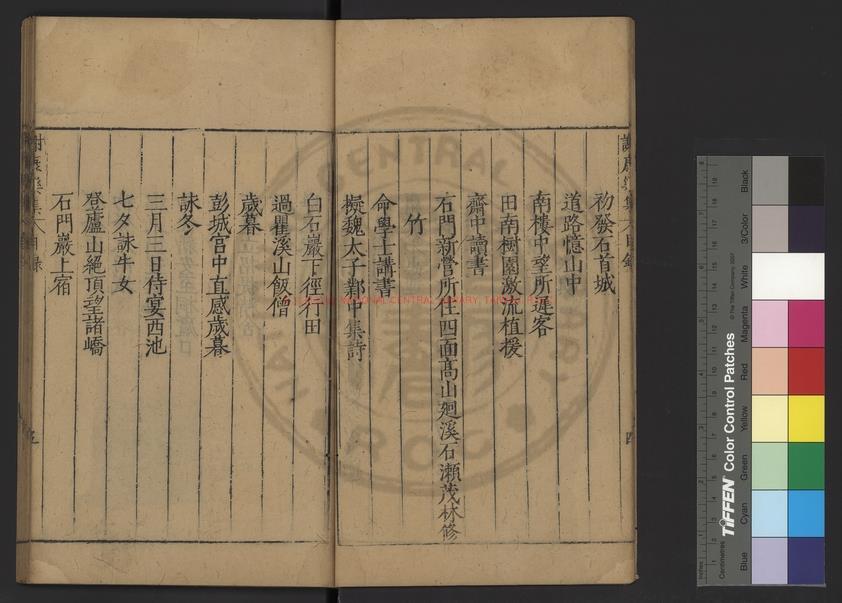 初發石首城
道路憶山中
南樓中望所遲客
田南樹園激流植援
齋中讀書
石門新營所住四面高山廻溪石瀨茂林修
竹
命學士講書
擬魏太子鄴中集詩
白石巖下徑行田
過瞿溪山飯僧
歲暮
彭城宮中直感歲暮
詠冬
三月三日侍宴西池
七夕詠牛女
登廬山絕頂望諸嶠
石門巖上宿
五
四
NATIONAL CENTRAL LIBRARY
CENTRAL
TIFFEN Color Control Patches
© The Tiffen Company, 2007
Centimetres
Inches
Blue
Cyan
Green
Yellow
Red
Magenta
White
3/Color
Black